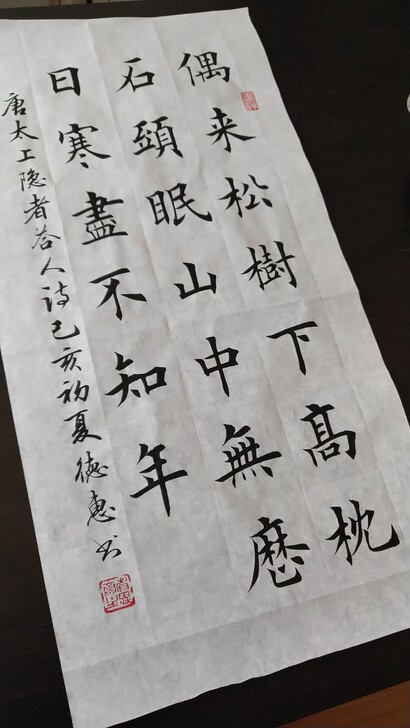 偶来松樹下高枕
石頭眠山中無歷
日寒盡不知年
唐太工隐者答人诗己亥初夏德惠书